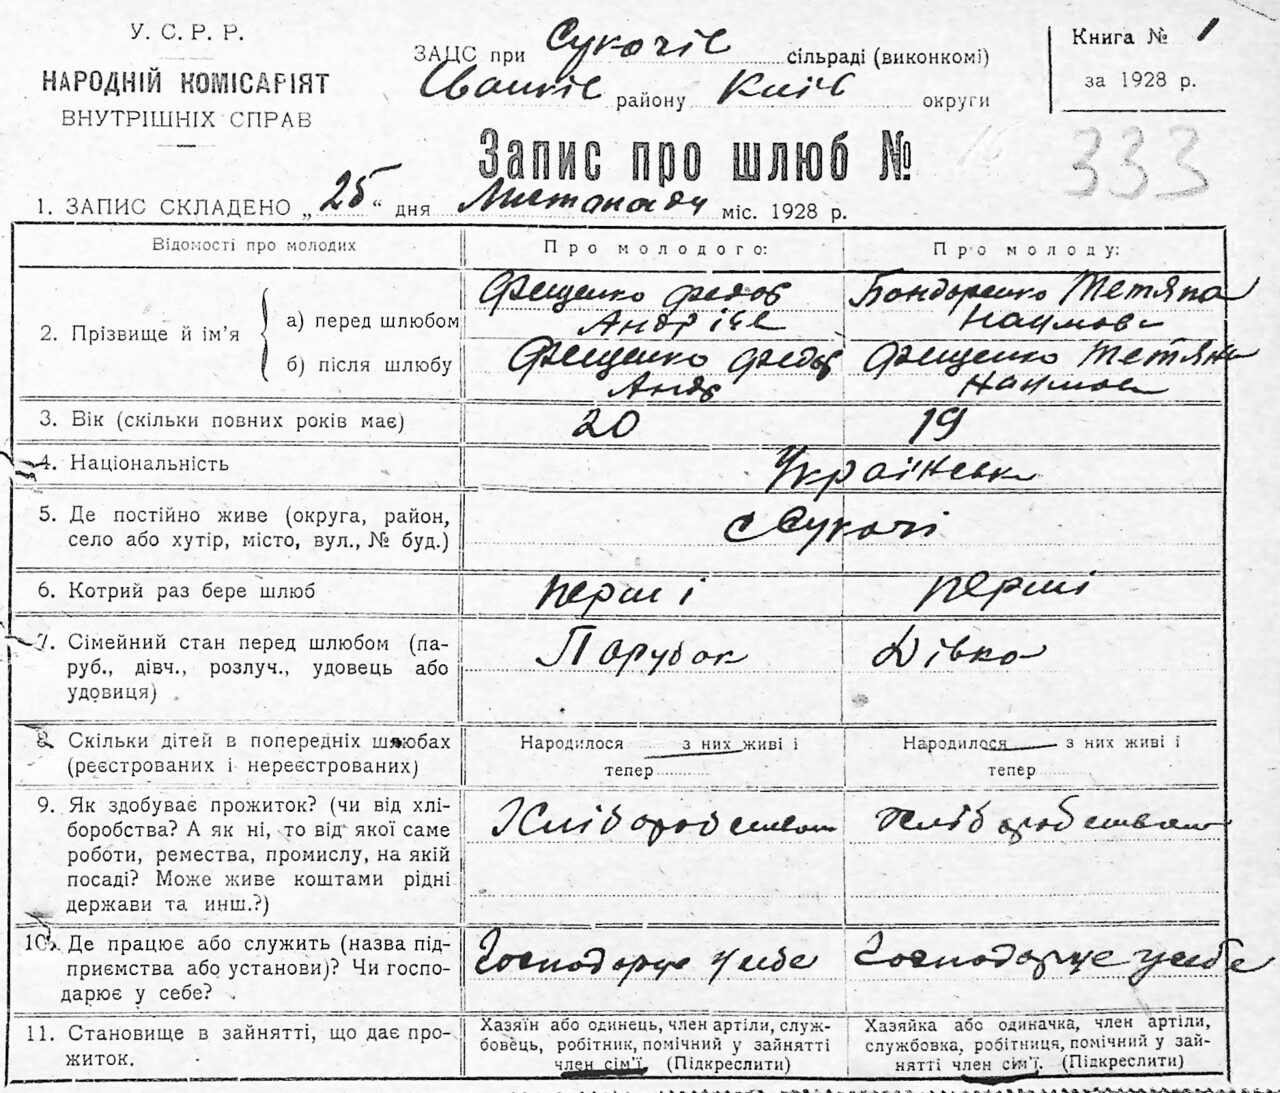 У. С. Р. Р.
НАРОДНІЙ КОМІСАРІЯТ
ВНУТРІШНІХ СПРАВ
ЗАЦС при Сукачіс сільраді (виконкомі)
Іванків району Київ округи
Книга № 1
за 1928 р.
Запис про шлюб № 333
1. ЗАПИС СКЛАДЕНО „25“ дня Листопаду міс. 1928 р.
Відомості про молодих
Про молодого:
Про молоду:
2. Прізвище й ім’я
а) перед шлюбом
Фещенко Федор
Андріїв
Бондаренко Тетяна
Наумова
б) після шлюбу
Фещенко Федор
Андр
Фещенко Тетяна
Наумов
3. Вік (скільки повних років має)
20
19
4. Національність
Українська
5. Де постійно живе (округа, район,
село або хутір, місто, вул., № буд.)
с Сукачі
6. Котрий раз бере шлюб
перші
перші
7. Сімейний стан перед шлюбом (па-
руб., дівч., розлуч., удовець або
удовиця)
Парубок
Дівка
8. Скільки дітей в попередніх шлюбах
(реєстрованих і нереєстрованих)
Народилося з них живі і
тепер
Народилося з них живі і
тепер
9. Як здобуває прожиток? (чи від хлі-
боробства? А як ні, то від якої саме
роботи, ремества, промислу, на якій
посаді? Може живе коштами рідні
держави та инш.?)
Хліборобством
Хліборобством
10. Де працює або служить (назва під-
приємства або установи)? Чи госпо-
дарює у себе?
Господарує у себе
Господарує у себе
11. Становище в зайнятті, що дає про-
житок.
Хазяїн або одинець, член артілі, служ-
бовець, робітник, помічний у зайнятті
член сім’ї. (Підкреслити)
Хазяйка або одиначка, член артіли,
службовка, робітниця, помічний у зай-
нятті член сім’ї. (Підкреслити)